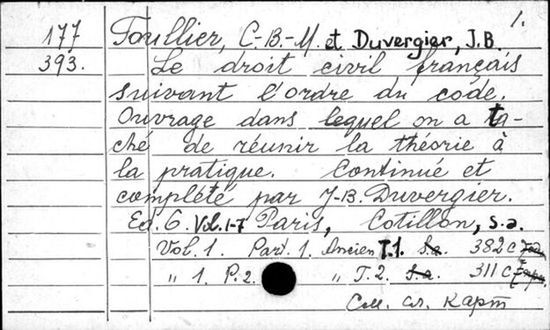 1.
177 Toullier, C-B-M. et Duvergier, J.B.
393. Le droit civil français
suivant l'ordre du code.
Ouvrage dans lequel on a ta-
ché de réunir la théorie à
la pratique. Continué et
complété par J-B. Duvergier.
Ed. 6. Vol. 1-7 Paris, Cotillon, s.a.
Vol. 1. Part. 1. Ancien T.1. s.a. 382 c
" 1. P. 2. " T. 2. s.a. 311 c
См. сл. карт